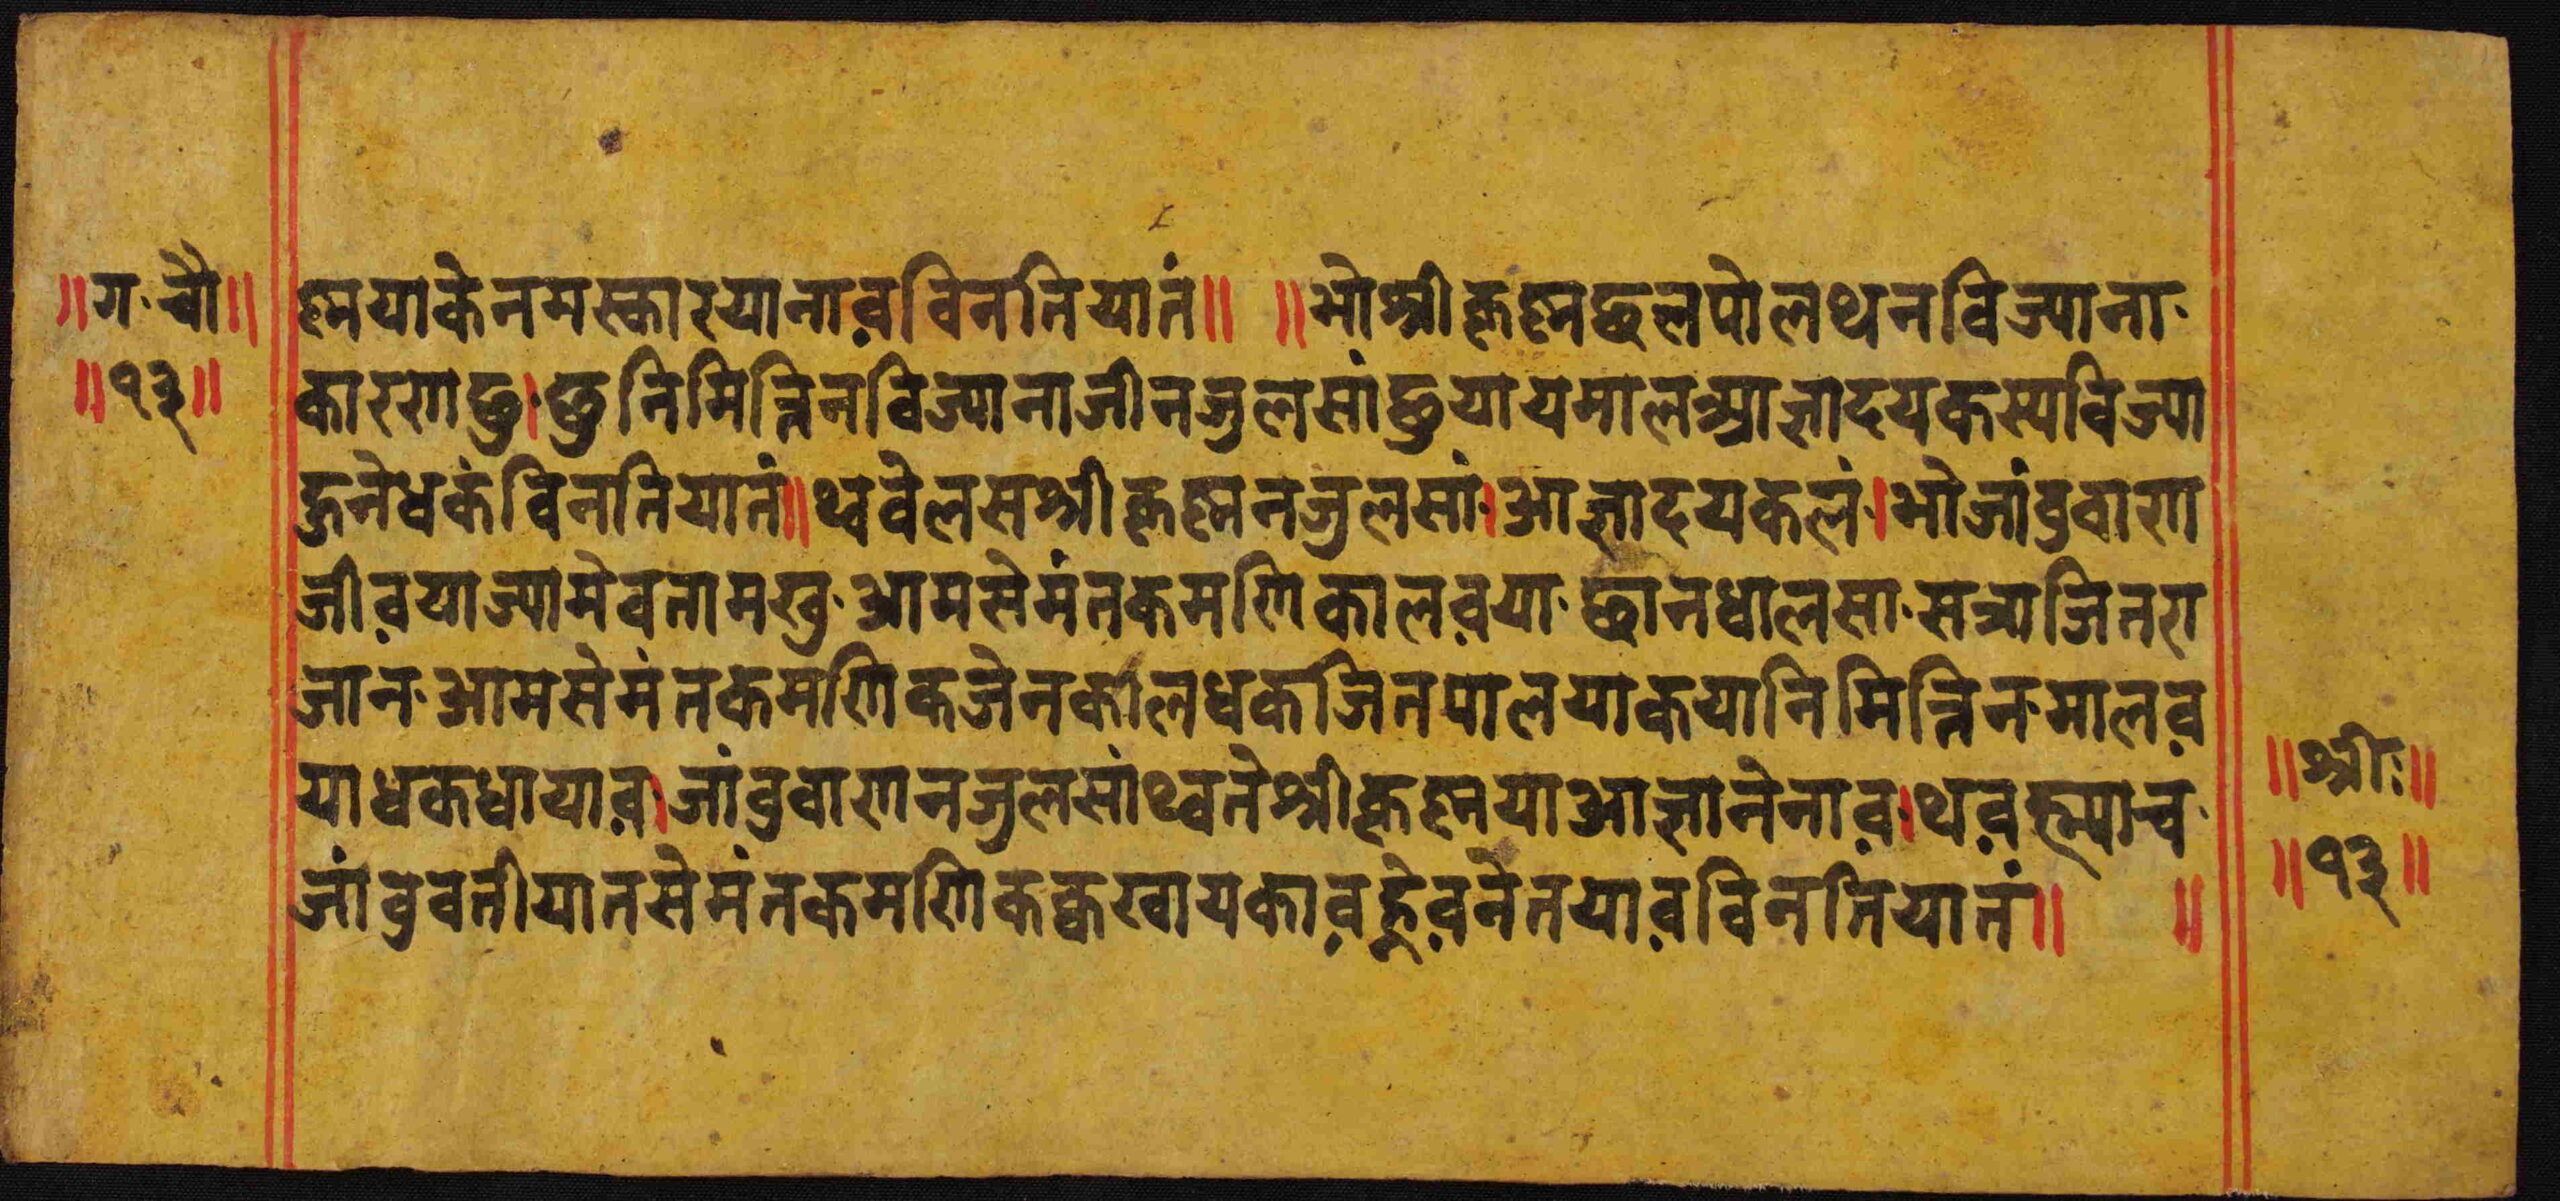 ॥ग·चौ॥
॥१३॥
ष्नयाके नमस्कारयानाव़ विनतियातं॥ ॥भो श्रीकृष्न छलपोल थन विज्याना·
कारण छु।·छु निमित्तिन विज्यानाजीन जुलसां छु यायमाल आज्ञादयकस्य विज्या
हुने धकं विनतियातं॥थ्व वेलस श्रीकृष्नन जुलसां·।आज्ञादयकलं·।भो जांवुवारा
जीव़या ज्या मेवतामखु·आम सेमंतकमणि कालव़या·छान धालसा·सत्राजितरा
जान·आम सेमंतकमणि कजेन काल धक जित पालयाक या निमित्तिन·मालव़
या धक धायाव़·।जांवुवारान जुलसां थ्वते श्रीकृष्नया आज्ञा नेनाव़·।थव़ ह्म्याच·
जांवुवतीयात सेमंतकमणि कक्वखायकाव़ ह्नेव़ने तयाव़ विनतियातं॥ ॥
॥श्रीः॥
॥१३॥